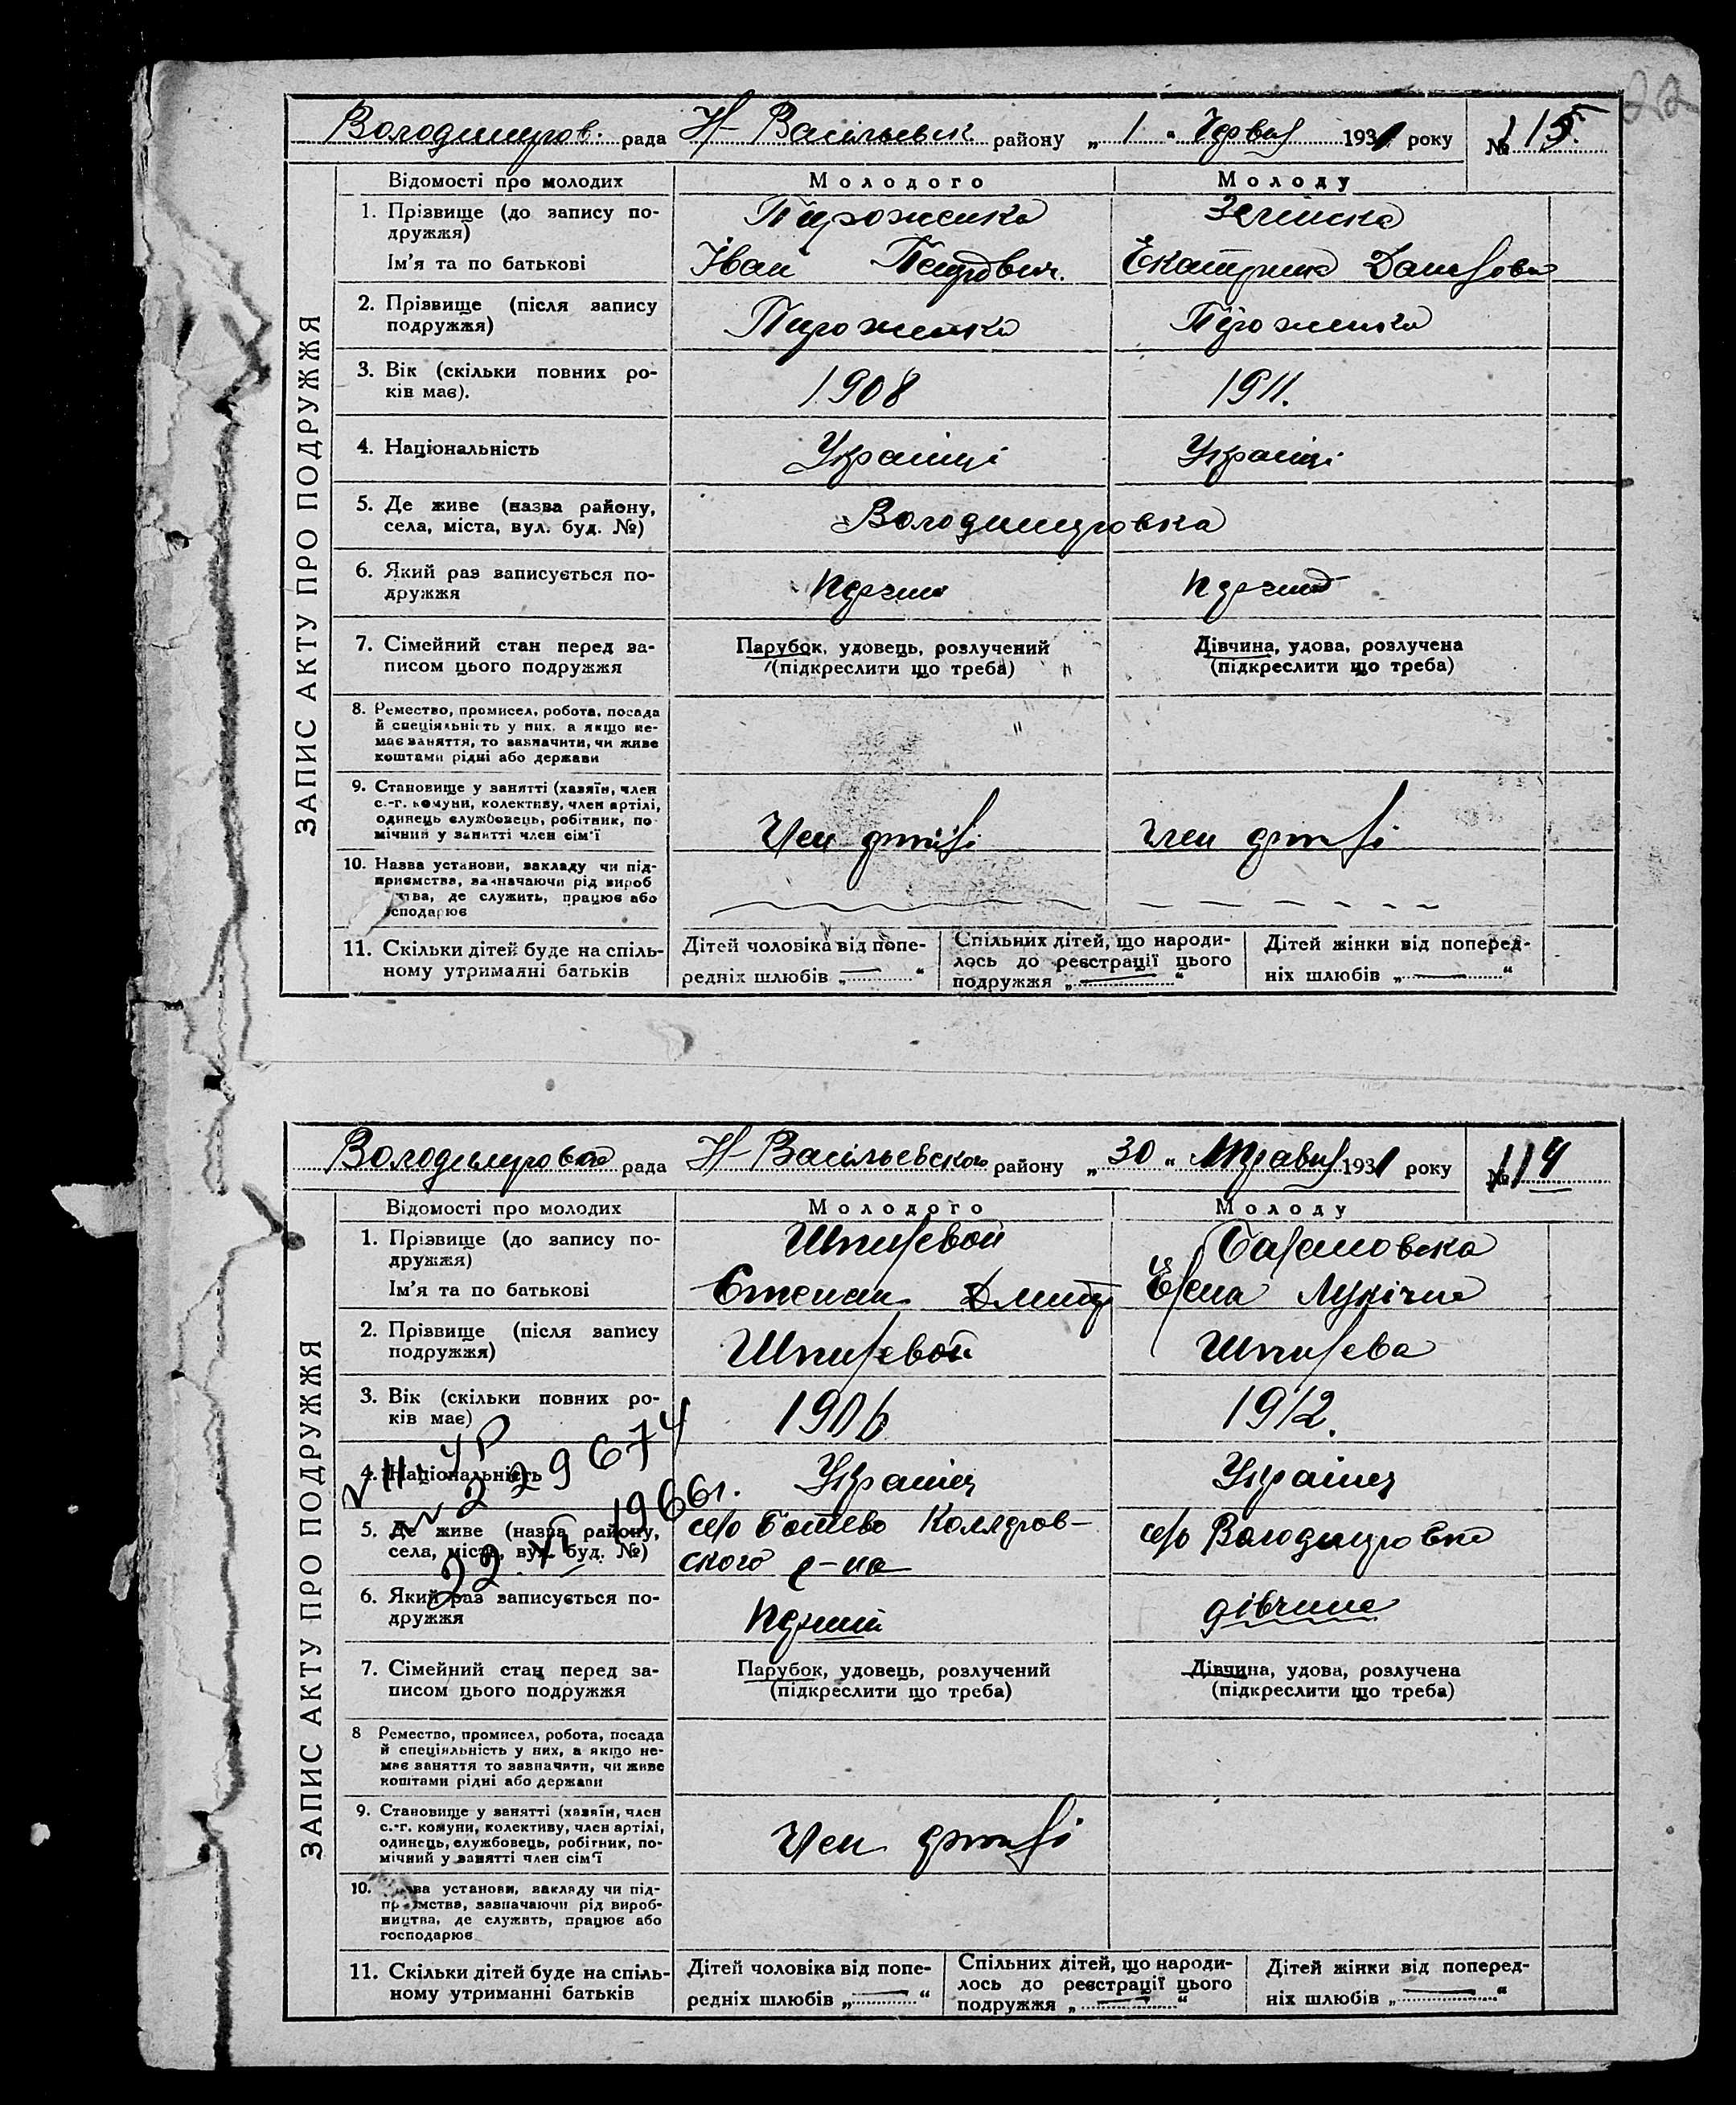 22
Володимиров. рада Н-Васільевск району „ 1 " Червня 1931 року № 115.
ЗАПИС АКТУ ПРО ПОДРУЖЖЯ
Відомості про молодих Молодого Молоду
1. Прізвище (до запису по-
дружжя)
Пироженко
Ім'я та по батькові Іван Петрович. Екатерина
2. Прізвище (після запису
подружжя)
Пироженко Пироженко
3. Вік (скільки повних ро-
ків має).
1908 1911.
4. Національність Українці Українці
5. Де живе (назва району,
села, міста, вул. буд. №)
Володимировка
6. Який раз записується по-
дружжя
7. Сімейний стан перед за-
писом цього подружжя
Парубок, удовець, розлучений
(підкреслити що треба)
Дівчина, удова, розлучена
(підкреслити що треба)
8. Ремество, промисел, робота, посада
й спеціяльність у них, а якщо не-
має заняття, то зазначити, чи живе
коштами рідні або держави
9. Становище у занятті (хазяїн, член
с.-г. комуни, колективу, член артілі,
одинець службовець, робітник, по-
мічний у занятті член сім'ї
Член артілі член артілі
10. Назва установи, закладу чи під-
приємства, зазначаючи рід вироб
ства, де служить, працює або
господарює
11. Скільки дітей буде на спіль-
ному утриманні батьків
Дітей чоловіка від попе-
редніх шлюбів „ — "
Спільних дітей, що народи-
лось до реєстрації цього
подружжя „ — "
Дітей жінки від поперед-
ніх шлюбів „ — "
Володимировска рада Н-Васільевского району „ 30 " Травня 1931 року № 114
ЗАПИС АКТУ ПРО ПОДРУЖЖЯ
Відомості про молодих Молодого Молоду
1. Прізвище (до запису по-
дружжя)
Шпилевой
Ім'я та по батькові Степан Дмитр Елена Лукічна
2. Прізвище (після запису
подружжя)
Шпилевой Шпилева
3. Вік (скільки повних ро-
ків має)
1906 1912.
4. Національність Українец Українец
№ 229674
22.VI 1966г.
5. Де живе (назва району,
села, міста, вул. буд. №)
село Ботево Коларов-
ского р-на
село Володимировка
6. Який раз записується по-
дружжя
перший дівчина
7. Сімейний стан перед за-
писом цього подружжя
Парубок, удовець, розлучений
(підкреслити що треба)
Дівчина, удова, розлучена
(підкреслити що треба)
8 Ремество, промисел, робота, посада
й спеціяльність у них, а якщо не-
має заняття то зазначити, чи живе
коштами рідні або держави
9. Становище у занятті (хазяїн, член
с.-г. комуни, колективу, член артілі,
одинець, службовець, робітник, по-
мічний у занятті член сім'ї
Член артілі
10. Назва установи, закладу чи під-
приємства, зазначаючи рід вироб-
ництва, де служить, працює або
господарює
11. Скільки дітей буде на спіль-
ному утриманні батьків
Дітей чоловіка від попе-
редніх шлюбів „ — "
Спільних дітей, що народи-
лось до реєстрації цього
подружжя „ — "
Дітей жінки від поперед-
ніх шлюбів „ — "